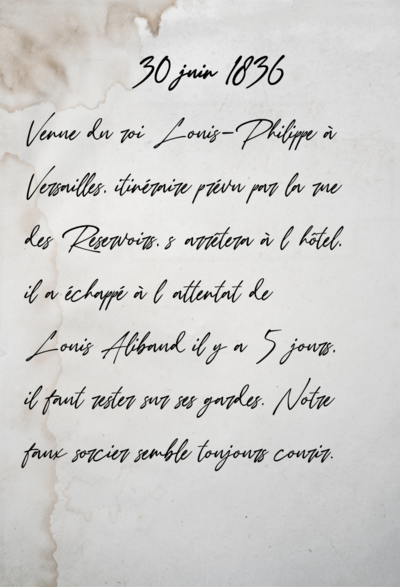 30 juin 1836
Venue du roi Louis-Philippe à
Versailles. itinéraire prévu par la rue
des Réservoirs. s arrêtera à l hôtel.
il a échappé à l attentat de
Louis Alibaud il y a 5 jours.
il faut rester sur ses gardes. Notre
faux sorcier semble toujours courir.